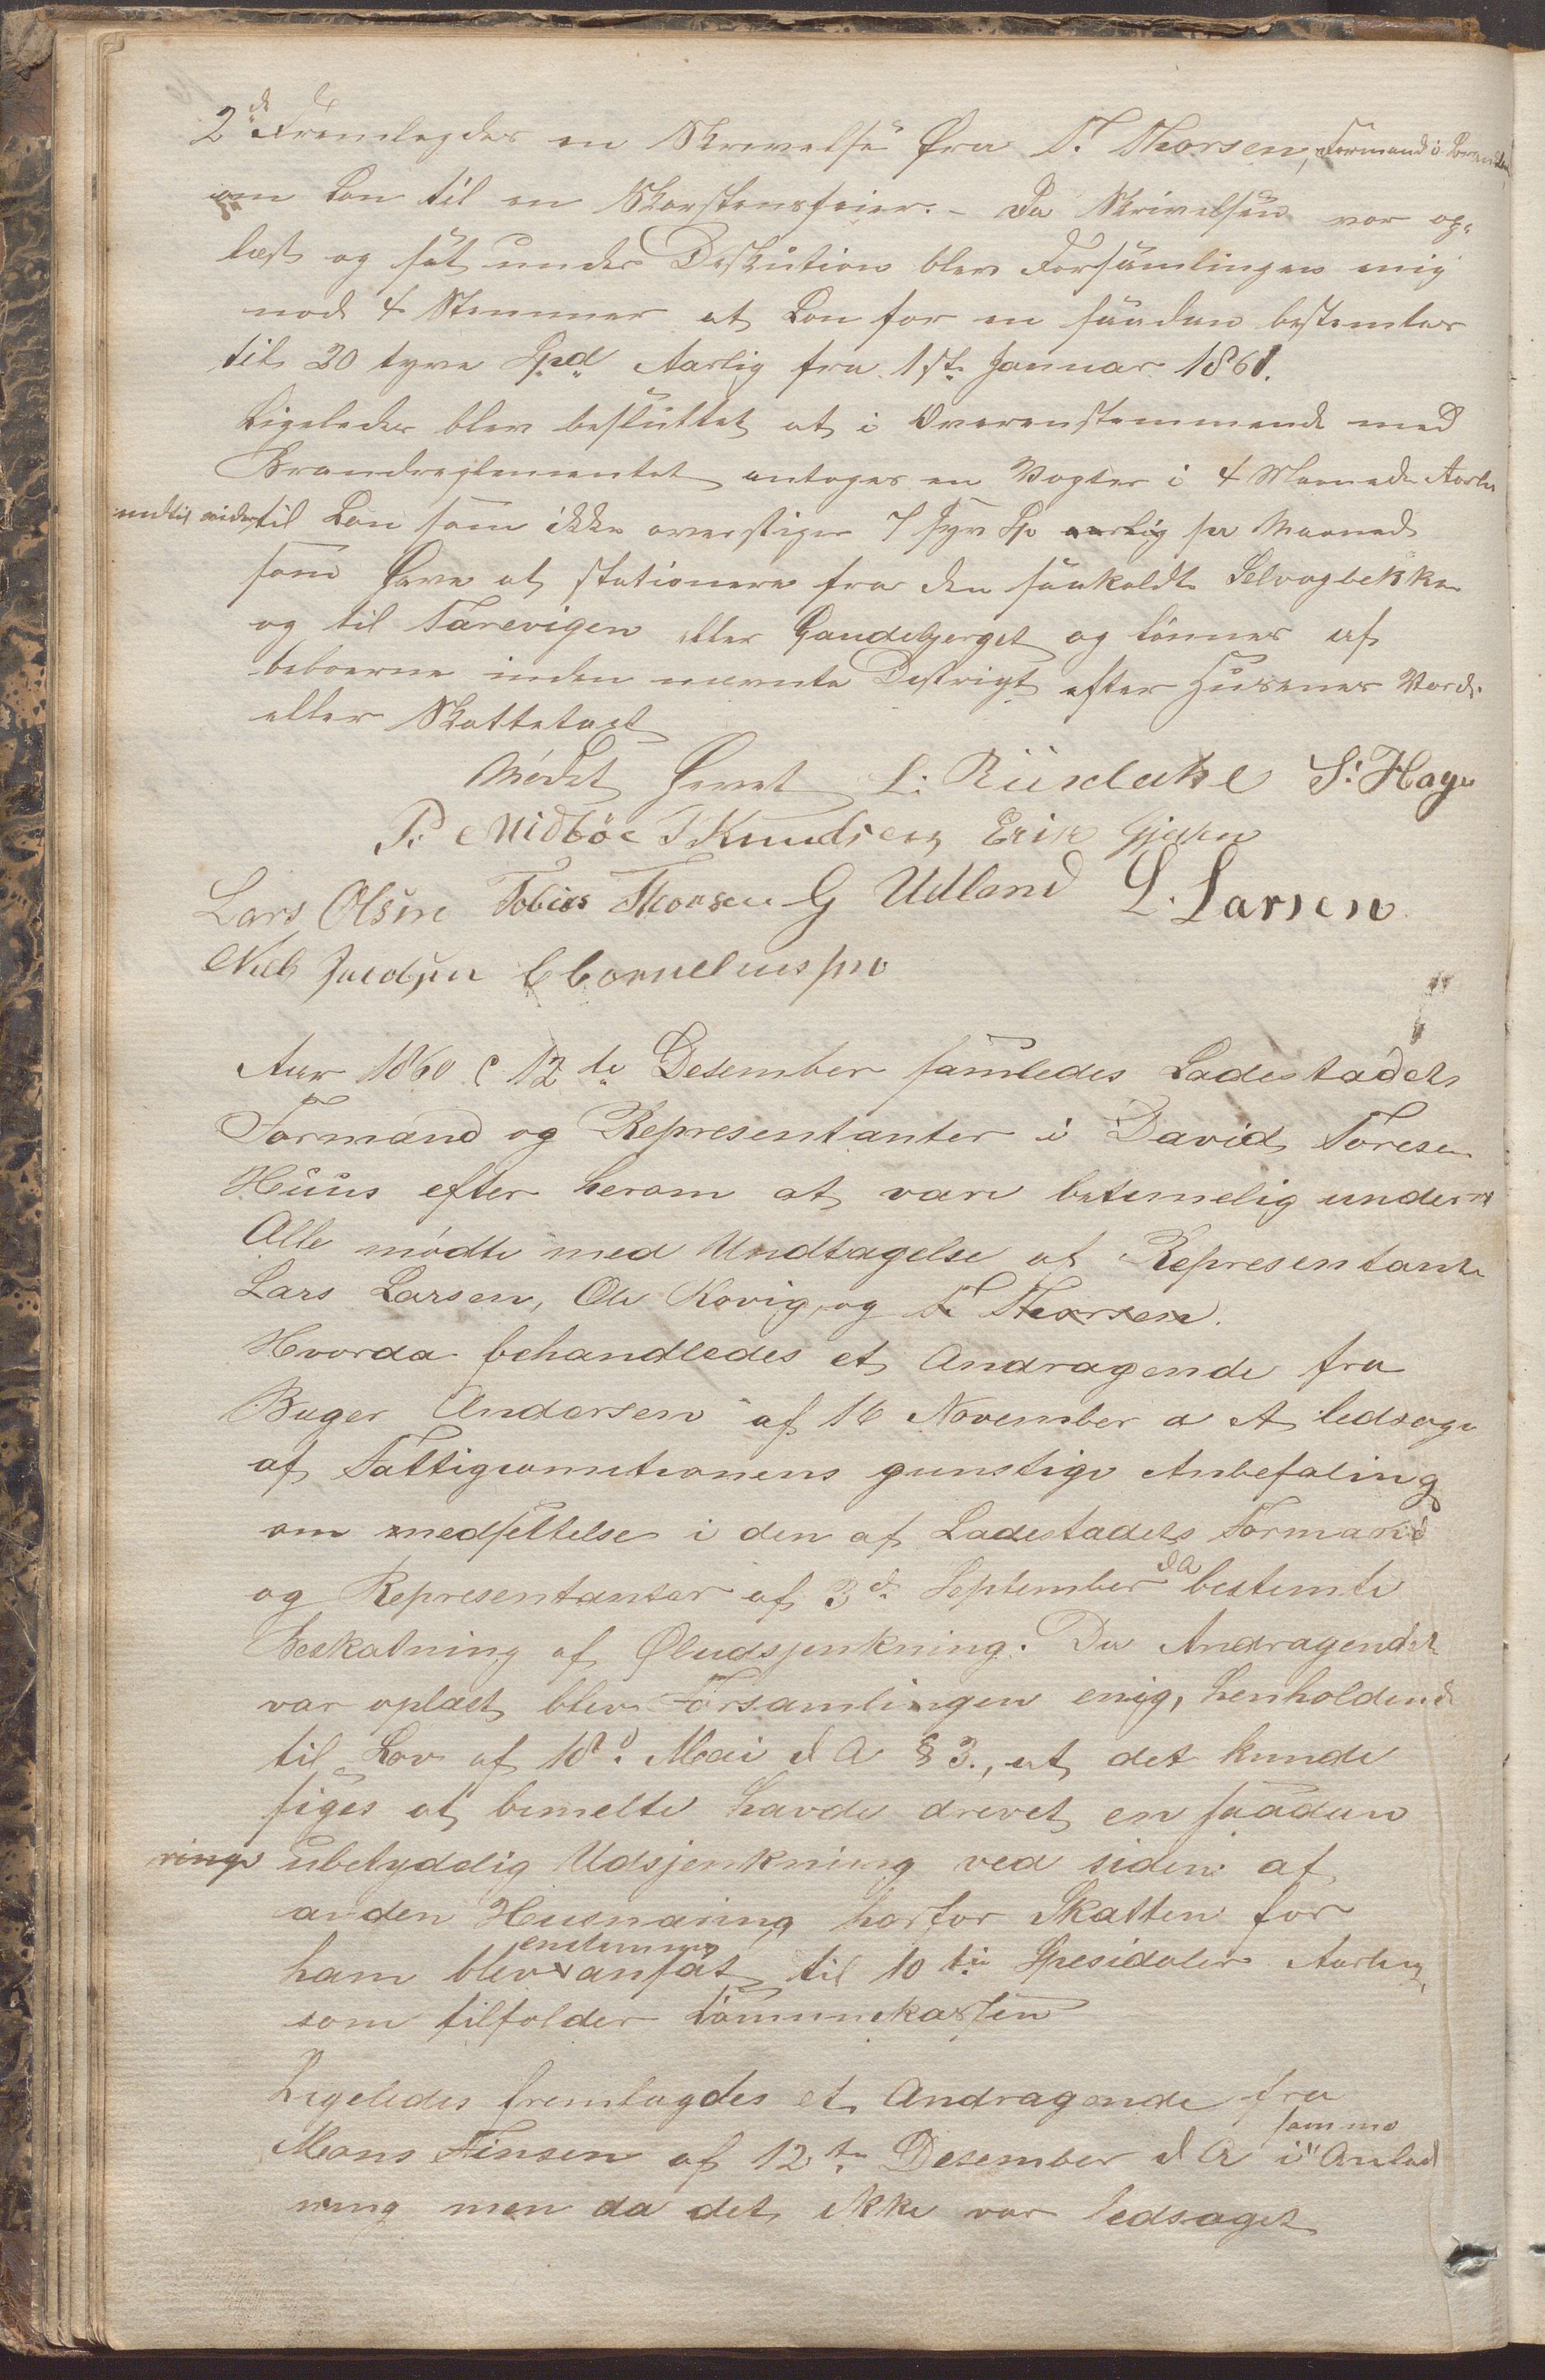 2de Fremlagdes en Skrivelse fra T. Thorsen, Formand i
om Løn til en Skorstensfeier. - Da Skrivelsen var op-
læst og sat under Diskution blev Forsamlingen enig
mod 4 Stemmer at Løn for en saadan bestemtes
til 20 tyve Spd Aarlig fra 1ste Januar 1861.
Ligeledes blev besluttet at i Overenstemmende med
Brandreglementet antages en Vægter i 4 Maaneder Aarlig
indtil videre til Løn som ikke overstiger 7 syv Sp aarlig pr Maaned
som have at stationere fra den saakaldte Selvogbekken
og til Tarevigen eller Gandebjerget og lønnes af
beboerne inden nævnte Destrigt efter Husenes Værdi
eller Skattetaxt
Mødet hævet L. Risdahl S. Haga
P. Midbøe T Knudsen Erik Gjelsn
Lars Olsen Tobias Thorsen G Udland L. Larsen
Niels Jacobsen C Cornelius pro
Aar 1860 d 12te Desember samledes Ladestadets
Formænd og Representanter i David Toresen
Huus efter herom at være betimelig underr
Alle mødte med Undtagelse af Representant
Lars Larsen, Ole Kovig, og T. Thorsen.
Hvorda behandledes et Andragende fra
Bager Andersen af 16 November a A ledsage
af Fattigcomitionens gunstige Anbefaling
om nedsettelse i den af Ladestadets Formænd
og Representanter af 3de September d A bestemte
Beskatning af Øludsjenkning. Da Andragendet
var oplæst blev Forsamlingen enig, henholdende
til Lov af 18de Mai d A § 3., at det kunde
siges at bemelte havde drevet en saadan
ringe ubetyddig Udsjenkning ved siden af
anden Husnæring, horfor Skatten for
ham blev enstemmig ansat til 10 ti Spesidaler Aarlig,
som tilfolder Komunekassen
Ligeledes fremlagdes et Andragende fra
Mons Finsen af 12te Desember d A i samme Anled
ning men da det ikke var ledsaget